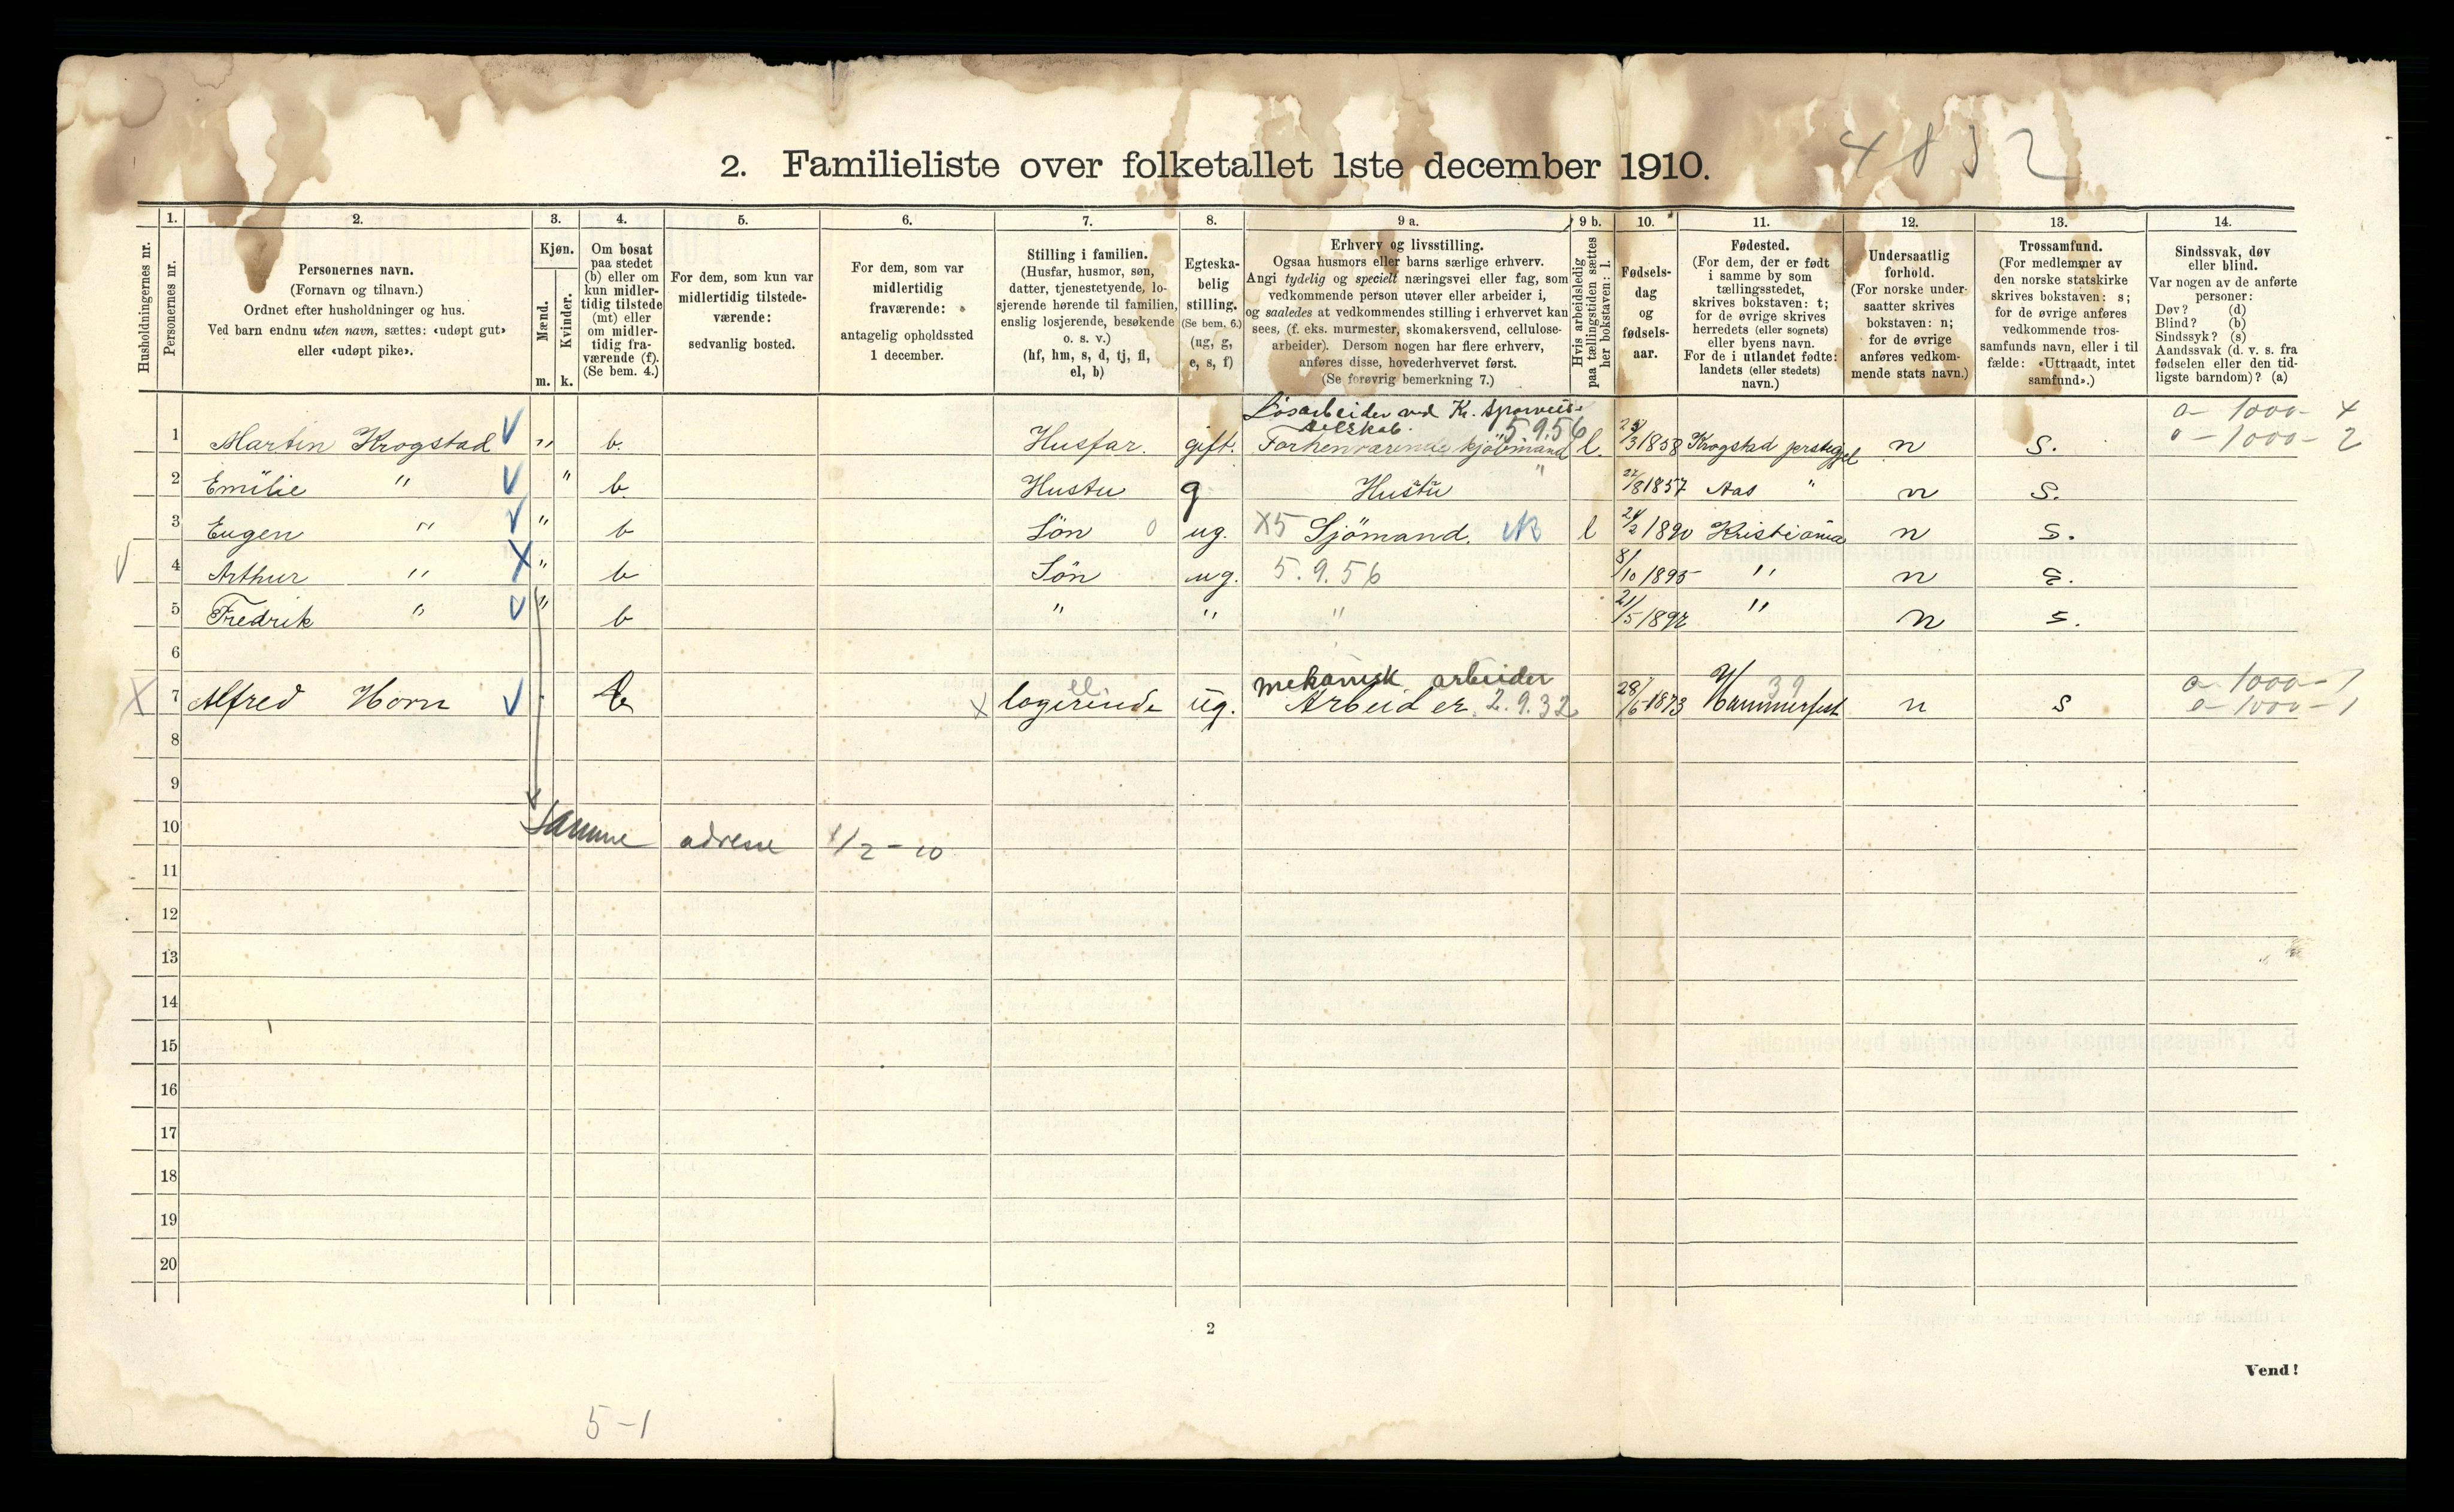 4832
2. Familieliste over folketallet 1ste december 1910.
Husholdningernes nr.
1.
Personernes nr.
2.
Personernes navn.
(Fornavn og tilnavn.)
Ordnet efter husholdninger og hus.
Ved barn endnu uten navn, sættes: «udøpt gut»
eller «udøpt pike».
3.
Kjøn.
Mænd.
Kvinder.
m. k.
4.
Om bosat
paa stedet
(b) eller om
kun midler-
tidig tilstede
(mt) eller
om midler-
tidig fra-
værende (f).
(Se bem. 4.)
5.
For dem, som kun var
midlertidig tilstede-
værende:
sedvanlig bosted.
6.
For dem, som var
midlertidig
fraværende:
antagelig opholdssted
1 december.
7.
Stilling i familien.
(Husfar, husmor, søn,
datter, tjenestetyende, lo-
sjerende hørende til familien,
enslig losjerende, besøkende
o. s. v.)
(hf, hm, s, d, tj, fl,
el, b)
8.
Egteska-
belig
stilling.
(Se bem. 6.)
(ug, g,
e, s, f)
9 a.
Erhverv og livsstilling.
Ogsaa husmors eller barns særlige erhverv.
Angi tydelig og specielt næringsvei eller fag, som
vedkommende person utøver eller arbeider i,
og saaledes at vedkommendes stilling i erhvervet kan
sees, (f. eks. murmester, skomakersvend, cellulose-
arbeider). Dersom nogen har flere erhverv,
anføres disse, hovederhvervet først.
(Se forøvrig bemerkning 7.)
9 b.
Hvis arbeidsledig
paa tællingstiden sættes
her bokstaven: l.
10.
Fødsels-
dag
og
fødsels-
aar.
11.
Fødested.
(For dem, der er født
i samme by som
tællingsstedet,
skrives bokstaven: t;
for de øvrige skrives
herredets (eller sognets)
eller byens navn.
For de i utlandet fødte:
landets (eller stedets)
navn.)
12.
Undersaatlig
forhold.
(For norske under-
saatter skrives
bokstaven: n;
for de øvrige
anføres vedkom-
mende stats navn.)
13.
Trossamfund.
(For medlemmer av
den norske statskirke
skrives bokstaven: s;
for de øvrige anføres
vedkommende tros-
samfunds navn, eller i til
fælde: «Uttraadt, intet
samfund».)
14.
Sindssvak, døv
eller blind.
Var nogen av de anførte
personer:
Døv? (d)
Blind? (b)
Sindssyk? (s)
Aandssvak (d. v. s. fra
fødselen eller den tid-
ligste barndom)? (a)
Løsarbeider ved Kr. Sporveis-
selskab. 5.9.56 0-1000-4
1 Martin Krogstad V " b. Husfar. gift. Forhenværende kjöbmand l. /3 1858 Krogstad n S. 0-1000-2
2 Emilie " V " b Hustu g Hustu " 27/8 1857 Aas " n S.
3 Eugen " V " b Sön 0 ug. X5 Sjömand. l 24/2 1890 Kristiania n S.
V 4 Arthur " X " b Sön ug. 5.9.56 8/10 1895 " n S.
5 Fredrik " V " b " " " 21/5 1892 " n s.
6
mekanisk arbeider 0-1000-1
X 7 Alfred Horn V b X logerende el ug. Arbeider. 2.9.32 28/6 1873 Hammerfest 39 n s 0-1000-1
8
9
10 Samme adresse 1/2-10
11
12
13
14
15
16
17
18
19
20
2
Vend!
5-1